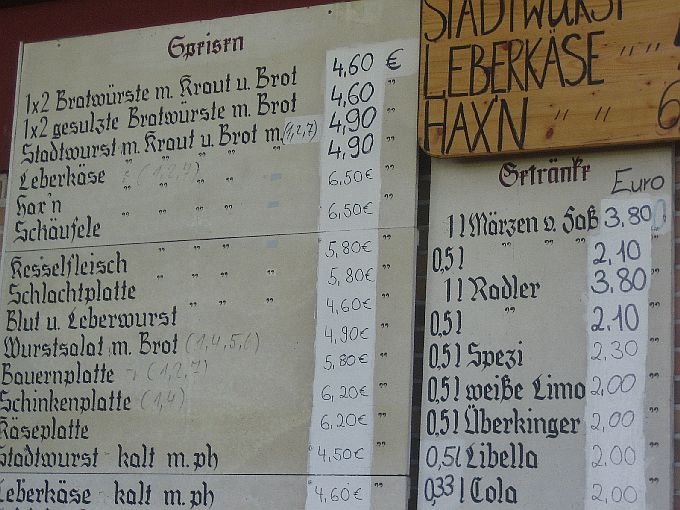 STADTWURST
LEBERKÄSE " "
HAX'N " " 6
Speisen
1x2 Bratwürste m. Kraut u. Brot 4,60 €
1x2 gesulzte Bratwürste m. Brot 4,60 "
Stadtwurst m. Kraut u. Brot m. (1,2,7) 4,90 "
Leberkäse " " " " (1,2,7) 4,90 "
Hax'n " " " 6,50€ "
Schäufele " " " 6,50€ "
Kesselfleisch " " " 5,80€ "
Schlachtplatte " " " 5,80€ "
Blut u. Leberwurst " " " 4,60€ "
Wurstsalat m. Brot (1,4,5,6) 4,90€ "
Bauernplatte (1,2,7) 5,80€ "
Schinkenplatte (1,4) 6,20€ "
Käseplatte 6,20€ "
Stadtwurst kalt m. ph 4,50€ "
Leberkäse kalt m. ph 4,60€ "
Getränke Euro
1 l Märzen v. Faß 3,80
0,5 l " " " 2,10 "
1 l Radler 3,80 "
0,5 l " 2,10 "
0,5 l Spezi 2,30 "
0,5 l weiße Limo 2,00 "
0,5 l Überkinger 2,00 "
0,5l Libella 2,00 "
0,33 l Cola 2,00 "